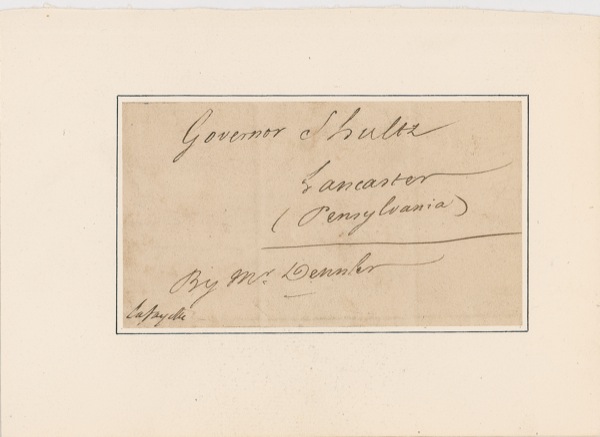 Governor Shultz
Lancaster
(Pensylvania)
By Mr. Dennler
Lafayette